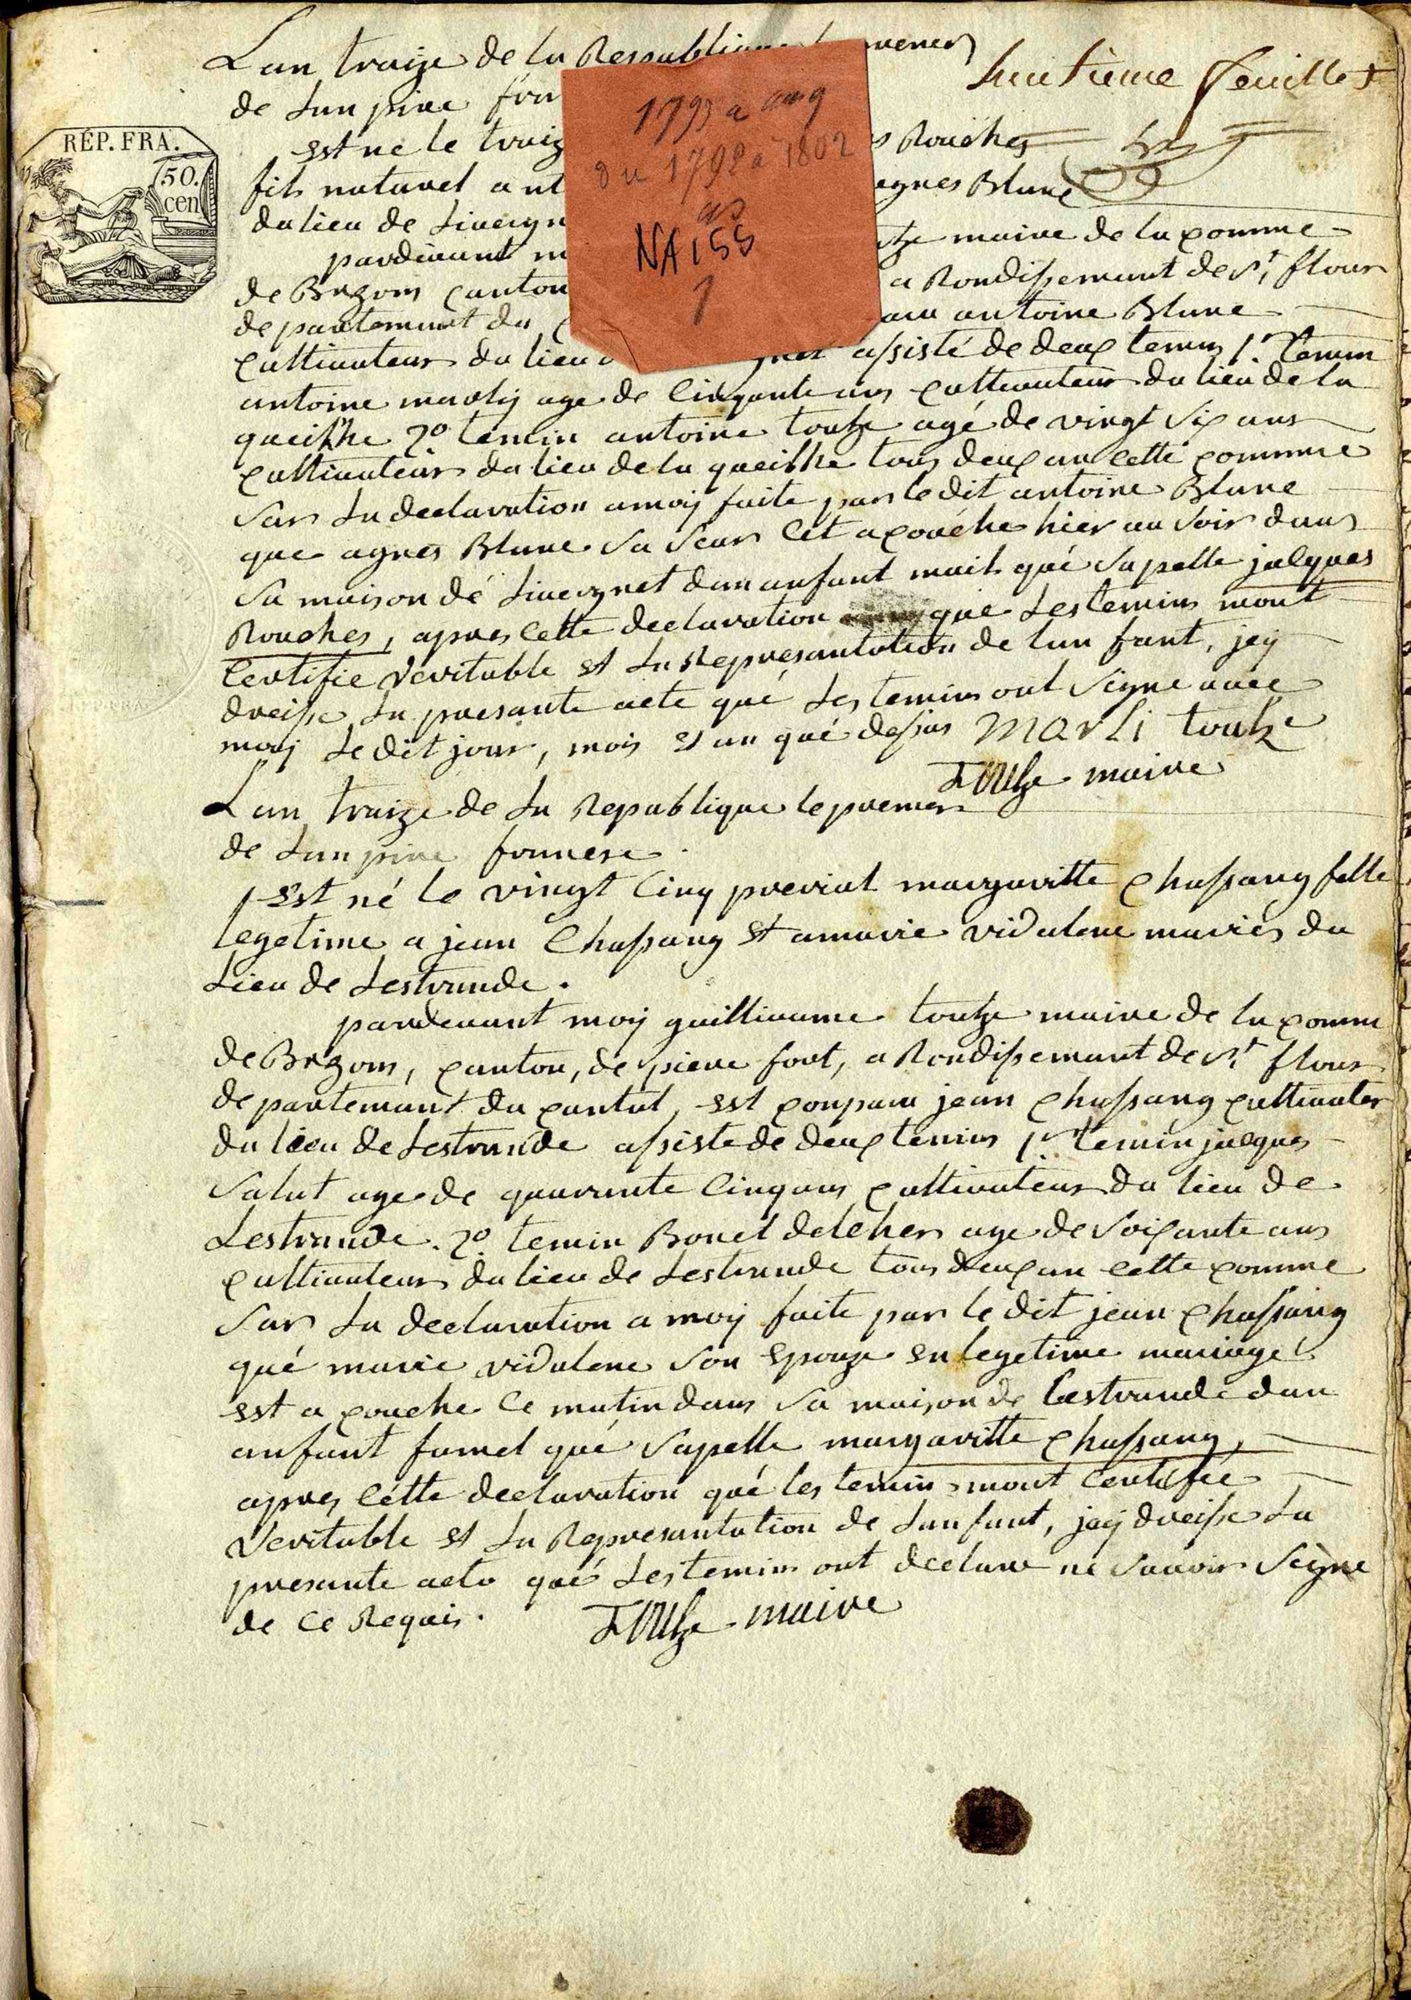 huitieme feuillet
RÉP. FRA.
50.
cen
1793 a
du 1792 a 1802
NA 155
1
Lan traize de la Republique premer
de Lan pire fran
est ne le traiz Rouches
fils naturel a nt agnes Blanc
du lieu de Livergn
pardevant m maire de la comme
de Brezons canton a Rondissemant de St flour
departemant du antoine Blanc
cultivateur du lieu assisté de deux temins 1r temin
antoine marly age de Cinquante ans cultivateur du lieu de la
queilhe 2o temin antoine toutze agé de vingt six ans
cultivateur du lieu de la queilhe tous deux an cette comme
Sur La declaration a moij faite par le dit antoine Blanc
que agnes Blanc Sa Seur Cet a couche hier au Soir dans
Sa maison de Livergnet dun anfant mail qué Sapelle jacques
Rouches, apres Cette declaration que Les temins mont
Certifie veritable et La Represantation de lan fant, jeij
dreisse La presante acte qué Les temins ont Signe avec
moij Le dit jour, mois et an qué dessus marli toutze
toutze maire
Lan traize de La Republique le premer
de Lan pire francese
Est né le vingt Cinq prerial margaritte chassang fille
legetime a jean Chassang et a marie vidalenc mariés du
Lieu de Lestrande.
pardevant moij guilliaume toutze maire de la comme
de Brezons, canton, de piere fort, a Rondissemant de St flour
departemant du cantal, est conparu jean chassang cultivater
du lieu de Lestrande assiste de deux temins 1r temin jacques
Salat age de quarante Cinq ans cultivateur du lieu de
Lestrande. 2o temin Bonet deleher age de Soixante ans
cultivateur du lieu de Lestrande tous deux an cette comme
Sur La declaration a moij faite par le dit jean chassang
qué marie vidalenc Son Epouze en legetime mariage
est a couche Ce matin dans Sa maison de Lestrande dun
anfant famel qué Sapelle margaritte chassang,
apres Cette declaration qué les temins mont Certifie
veritable et La Represantation de Lanfant, jeij dreisse La
presante acte qué Les temins ont declare ne Savoir Signe
de Ce Requis. toutze maire